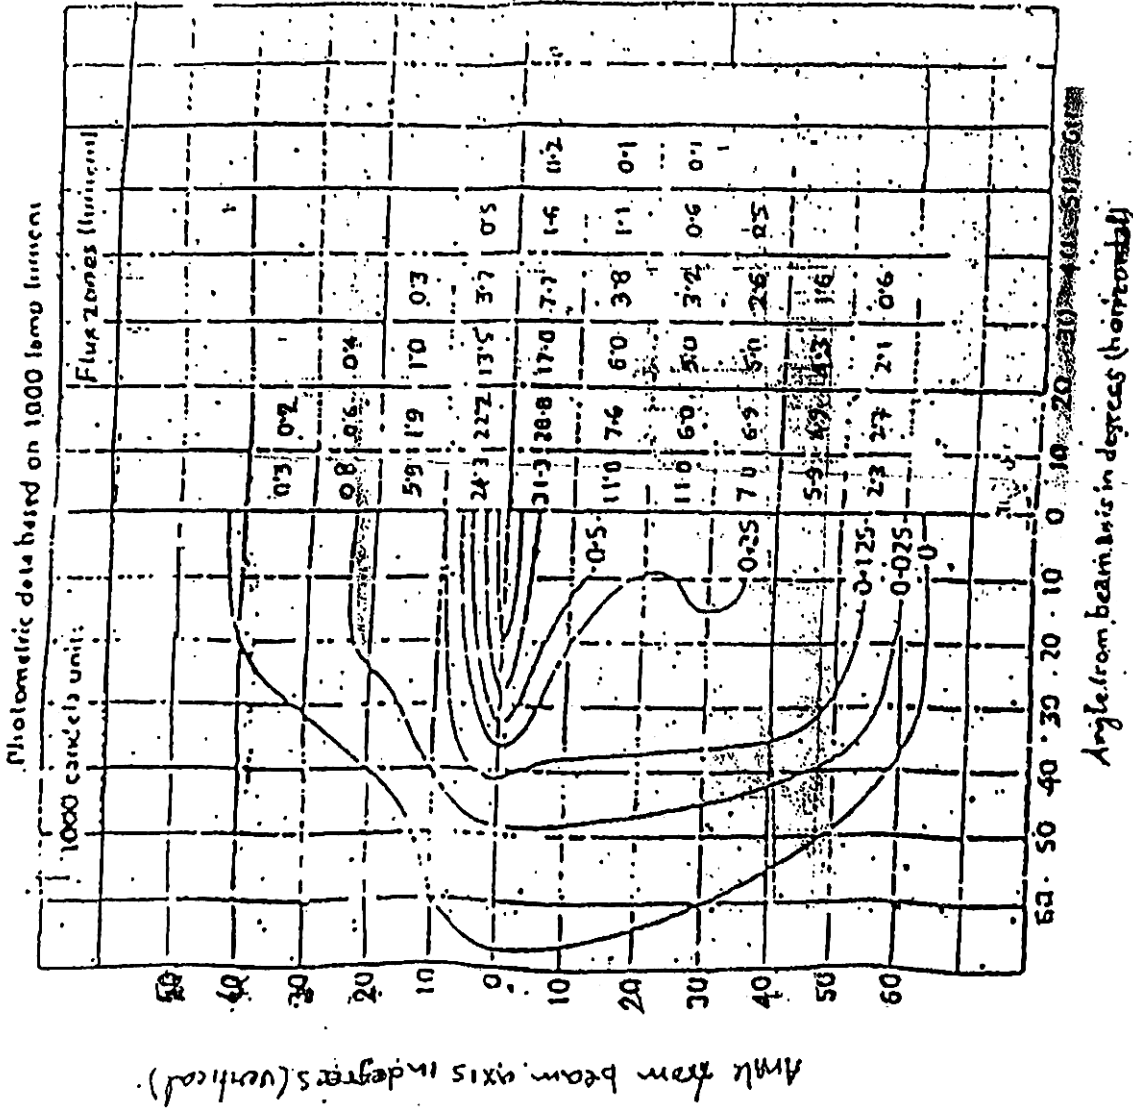 Photometric data based on 1000 lamp lumens
1000 candela units
Flux zones (lumens)
0.3 0.2
0.8 0.6 0.4
5.9 1.9 1.0 0.3
24.3 22.2 13.5 3.7 0.5
31.3 28.8 17.0 7.7 1.6 0.2
11.0 7.6 6.0 3.8 1.1 0.1
11.0 6.0 5.0 3.2 0.6 0.1
7.0 6.9 5.0 2.6
5.9 4.9 4.3 1.6
2.3 2.7 2.1 0.6
0.5
0.25
0.125
0.025
0
50
40
30
20
10
0
10
20
30
40
50
60
60 50 40 30 20 10 0 10 20 30 40 50
Angle from beam axis in degrees (horizontal)
Angle from beam axis in degrees (vertical)